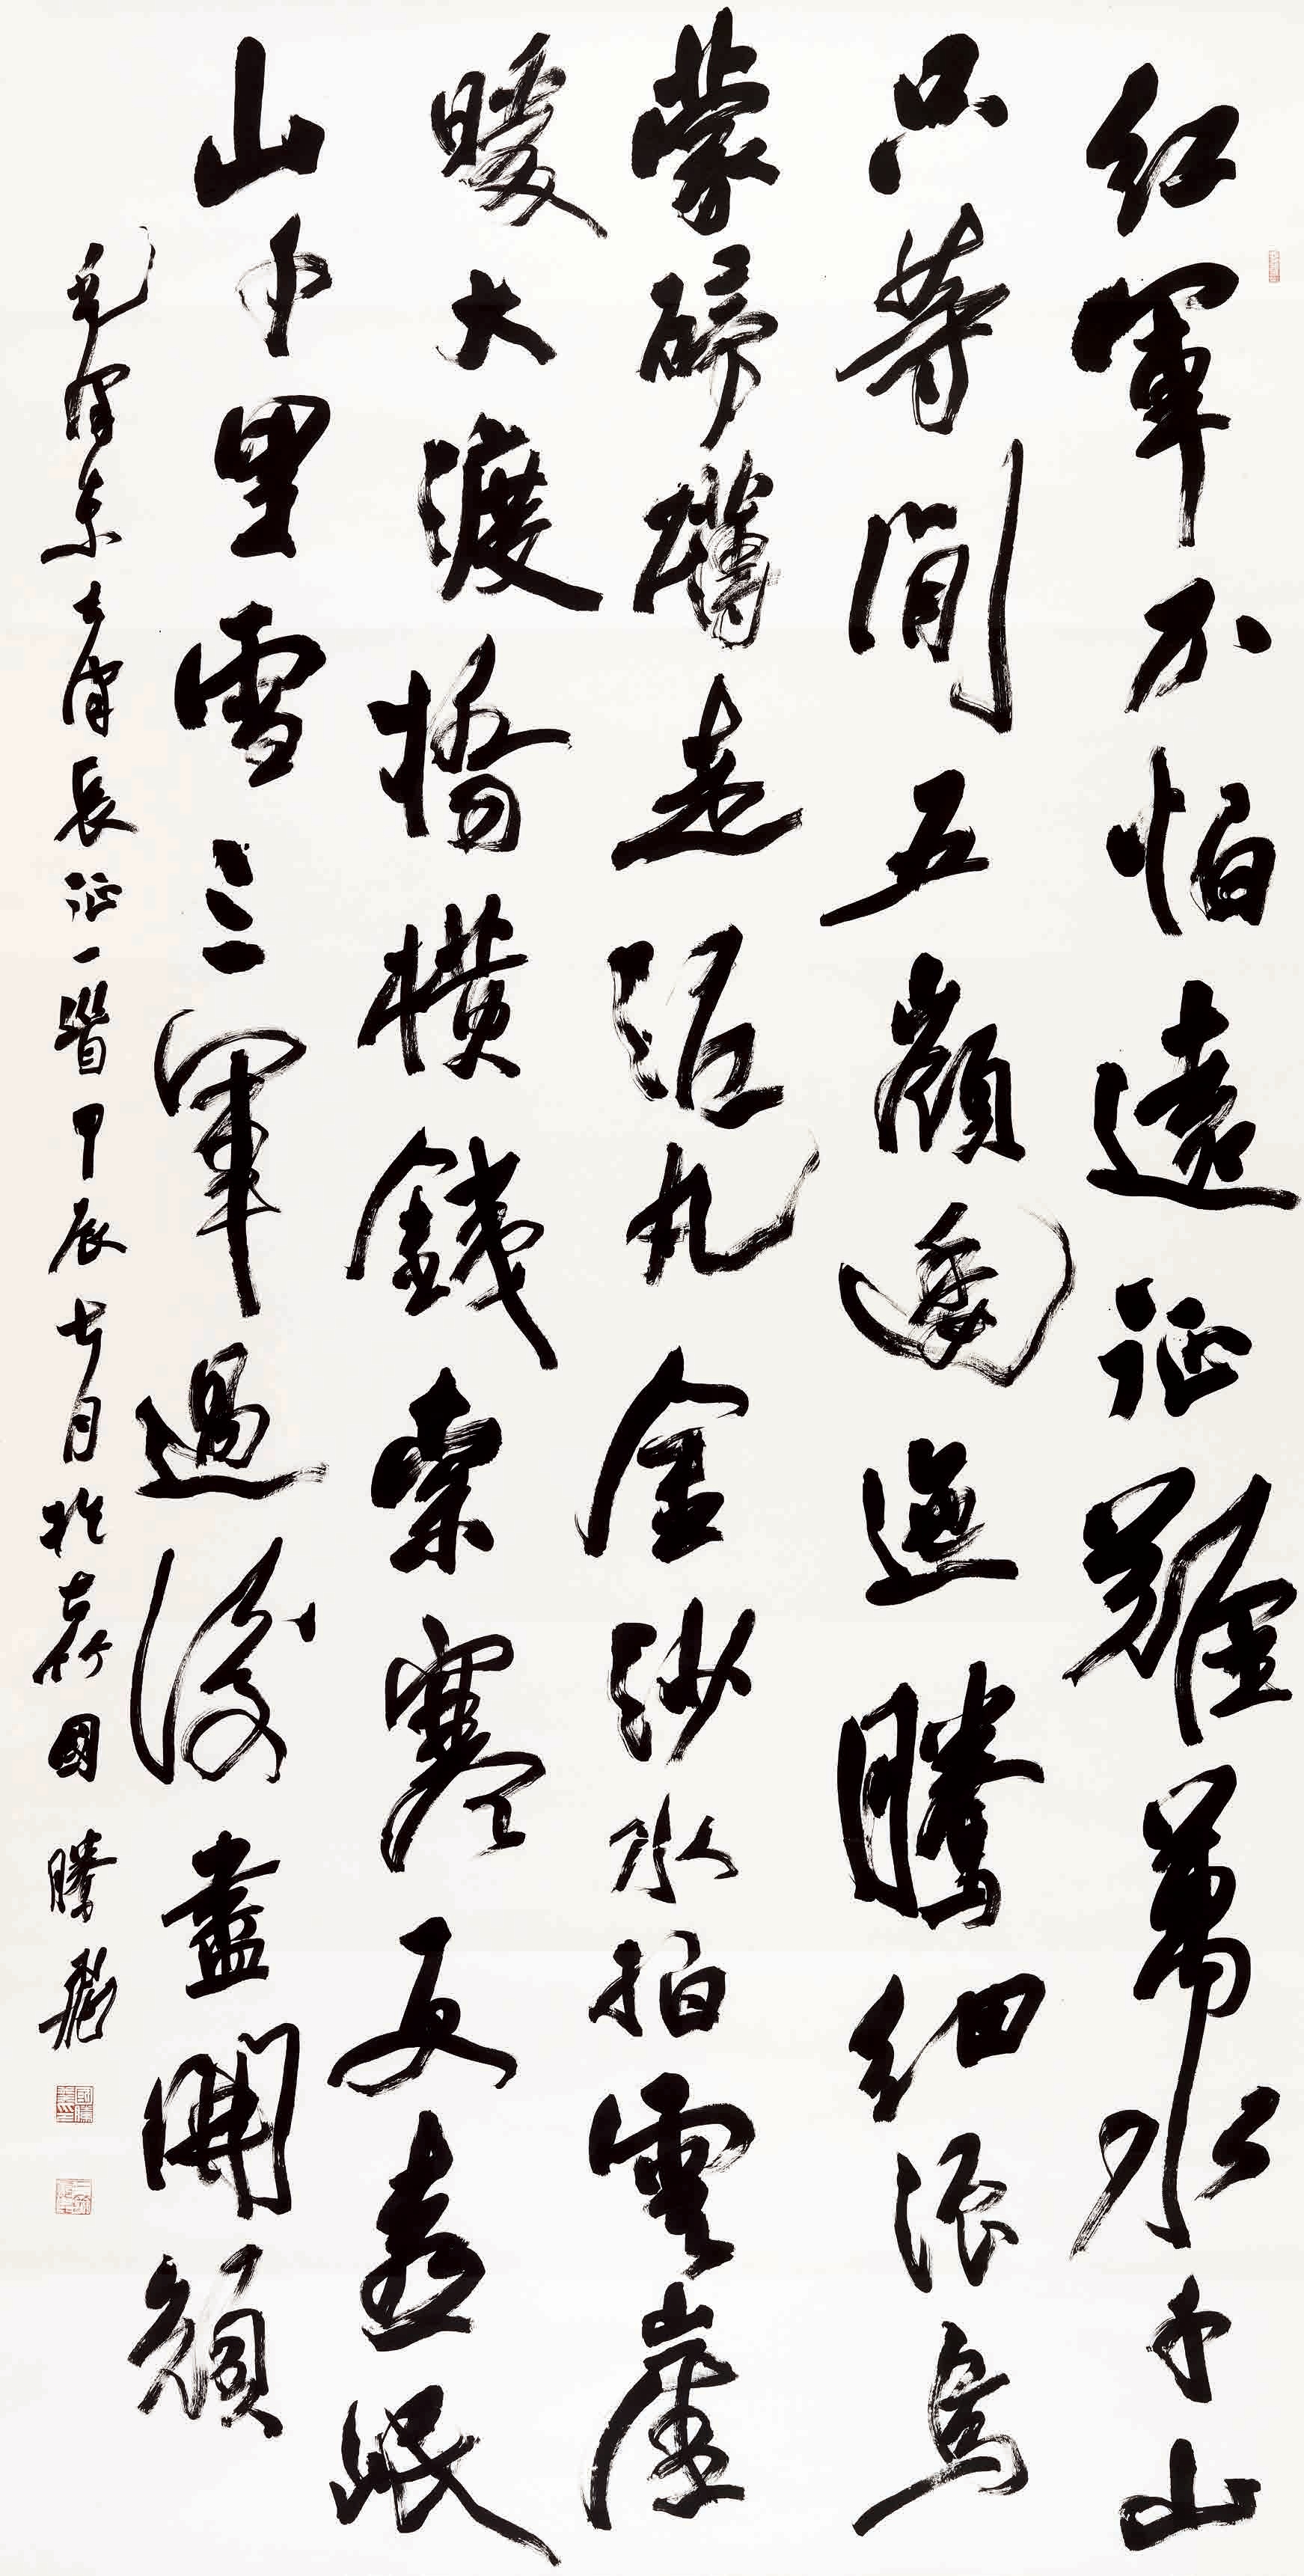 紅軍不怕遠征難萬水千山
只等閒五嶺逶迤騰細浪烏
蒙磅礴走泥丸金沙水拍雲崖
暖大渡橋橫鐵索寒更喜岷
山千里雪三軍過後盡開顏
毛澤東七律長征一首甲辰七月於國騰飛